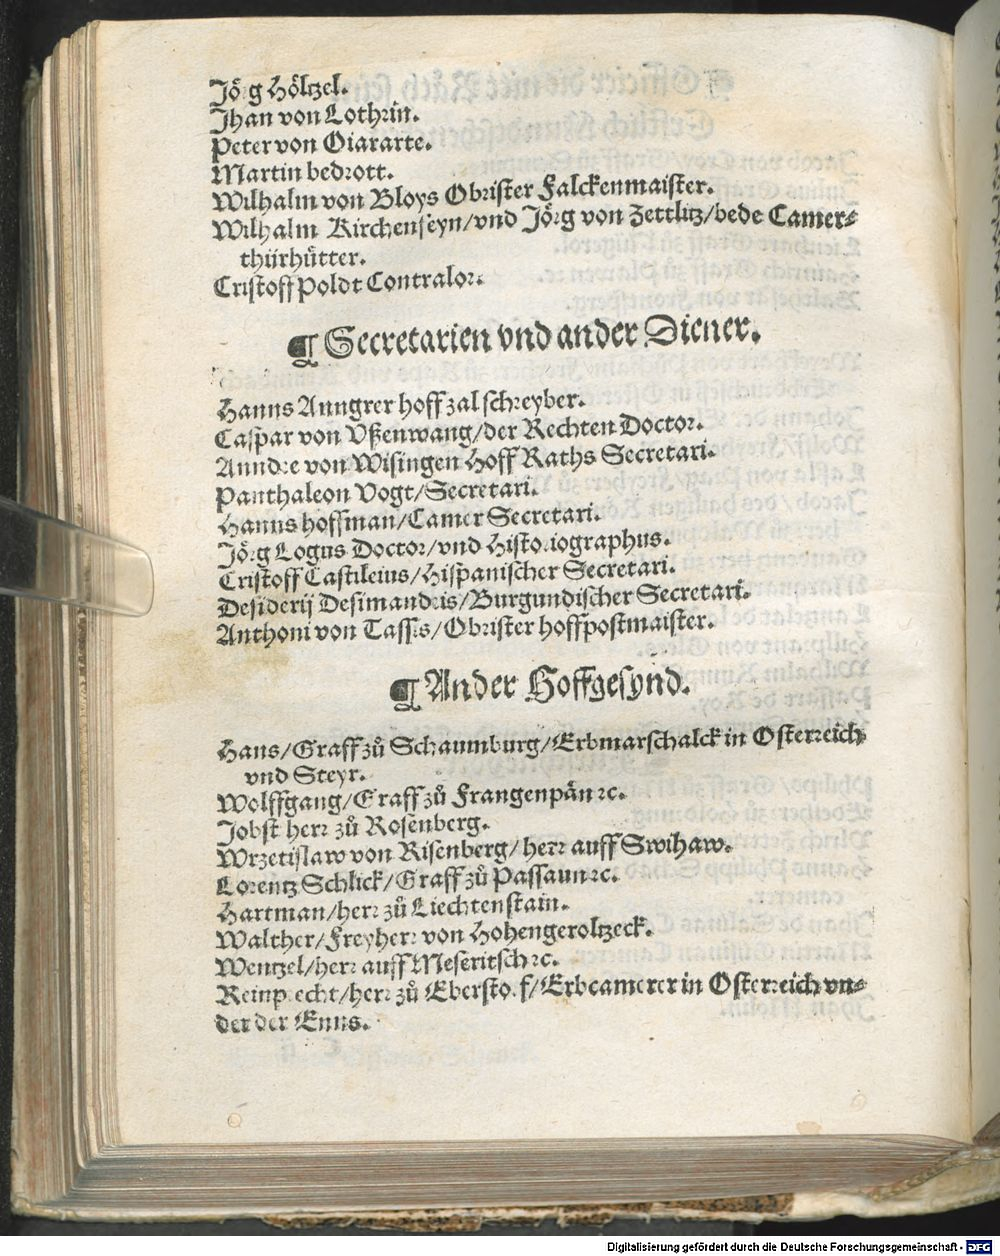 Jörg Höltzel.
Jhan von Lothrin.
Peter von Oiararte.
Martin bedrott.
Wilhalm von Bloys Obrister Falckenmaister.
Wilhalm Kirchenseyn/vnd Jörg von Zettlitz/bede Camer-
thürhütter.
Cristoff Poldt Contralor.
¶ Secretarien vnd ander Diener.
Hanns Anngrer hoffzalschreyber.
Caspar von Vßenwang/der Rechten Doctor.
Anndre von Wisingen Hoff Raths Secretari.
Panthaleon Vogt/Secretari.
Hanns hoffman/Camer Secretari.
Jörg Logus Doctor/vnd Historiographus.
Cristoff Castileius/Hispanischer Secretari.
Desiderij Desimandris/Burgundischer Secretari.
Anthoni von Tassis/Obrister hoffpostmaister.
¶ Ander Hoffgesynd.
Hans/Graff zů Schaumburg/Erbmarschalck in Osterreich
vnd Steyr.
Wolffgang/Graff zů Frangenpän ꝛc.
Jobst herr zů Rosenberg.
Wrzetislaw von Risenberg/herr auff Swihaw.
Lorentz Schlick/Graff zů Passaun ꝛc.
Hartman/herr zů Liechtenstain.
Walther/Freyherr von Hohengeroltzeck.
Wentzel/herr auff Meseritsch ꝛc.
Reinprecht/herr zů Eberstorf/Erbcamerer in Osterreich vn-
der der Enns.
Digitalisierung gefördert durch die Deutsche Forschungsgemeinschaft - DFG